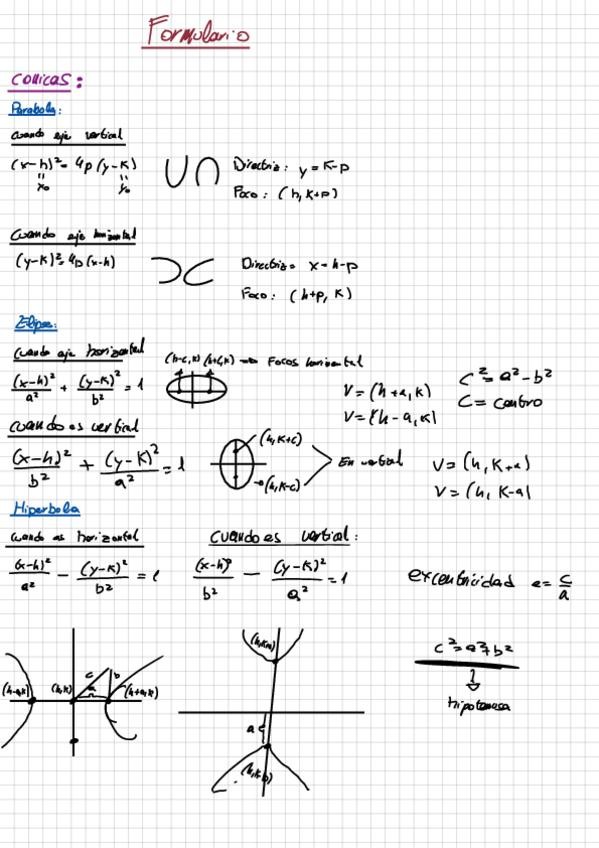 Formulario
Conicas:
Parabola:
Cuando eje vertical
(x-h)² = 4p(y-k)
x₀ y₀
Directriz: y = k-p
Foco: (h, k+p)
Cuando eje horizontal
(y-k)² = 4p(x-h)
Directriz = x = h-p
Foco: (h+p, k)
Elipse:
Cuando eje horizontal
(h-c,k) (h+c,k) → Focos horizontal
(x-h)²/a² + (y-k)²/b² = 1
V = (h+a, k)
V = (h-a, k)
c² = a²-b²
C = centro
Cuando es vertical
(x-h)²/b² + (y-k)²/a² = 1
(h, k+c)
(h, k-c)
En vertical
V = (h, k+a)
V = (h, k-a)
Hiperbola
Cuando es horizontal
Cuando es vertical:
(x-h)²/a² - (y-k)²/b² = 1
(x-h)²/b² - (y-k)²/a² = 1
excentricidad e = c/a
c² = a²+b²
hipotenusa
(h-a,k) (h,k) c a b (h+a,k)
a